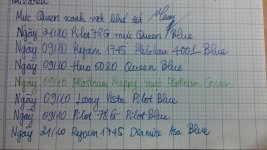 Mực Queen xanh vet khá tốt
Ngày 21/10 Pilot 78G mực Queen Blue
Ngày 09/10 Rejoin 1745 Pelikan 4001 Blue
Ngày 09/10 Hero 5020 Queen Blue
Ngày 09/10 Platinum Preppy mực Platinum Green
Ngày 09/10 Lamy Vista Pilot Blue
Ngày 09/10 Pilot 78G Pilot Blue
Ngày 21/10 Rejoin 1745 Diamine Blue